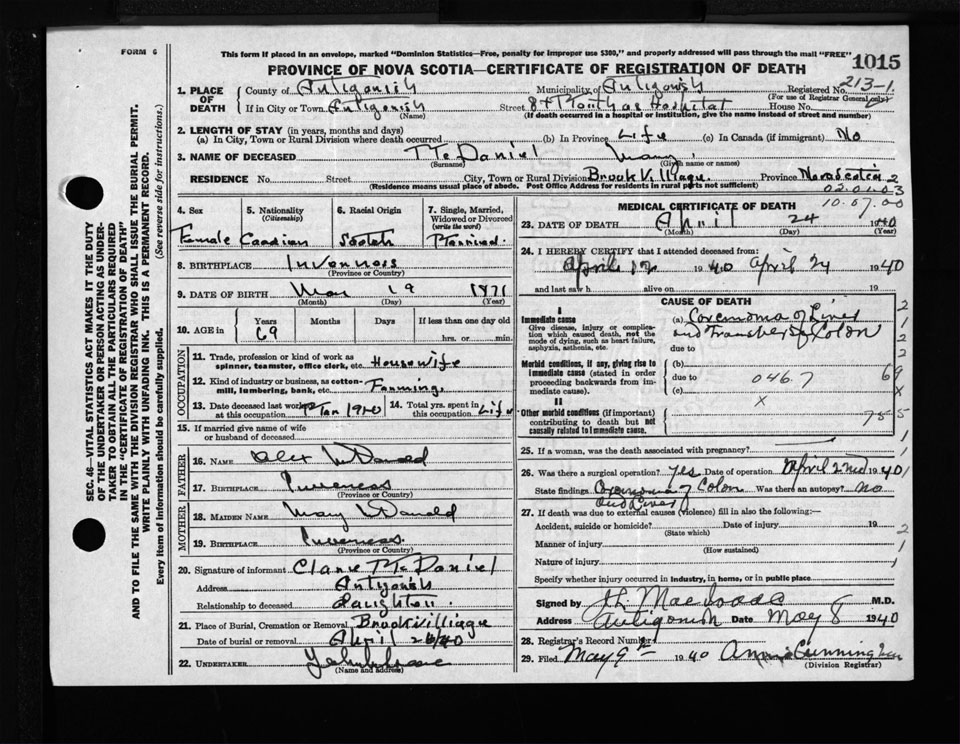 FORM 6
This form if placed in an envelope, marked "Dominion Statistics—Free, penalty for improper use $300," and properly addressed will pass through the mail "FREE"
1015
PROVINCE OF NOVA SCOTIA—CERTIFICATE OF REGISTRATION OF DEATH
213-1
1. PLACE OF DEATH
County of Antigonish Municipality of Antigonish Registered No.
(For use of Registrar General only)
If in City or Town Antigonish Street St Marthas Hospital House No.
(Name) (If death occurred in a hospital or institution, give the name instead of street and number)
2. LENGTH OF STAY (in years, months and days)
(a) In City, Town or Rural Division where death occurred (b) In Province Life (c) In Canada (if immigrant) No
3. NAME OF DECEASED McDaniel Mary
(Surname) (Given name or names)
RESIDENCE No. Street City, Town or Rural Division Brook Village Province Nova Scotia 2
(Residence means usual place of abode. Post Office Address for residents in rural parts not sufficient)
02.01.03
4. Sex 5. Nationality (Citizenship) 6. Racial Origin 7. Single, Married, Widowed or Divorced (write the word)
Female Canadian Scotch Married
8. BIRTHPLACE Inverness
(Province or Country)
9. DATE OF BIRTH 19 1871
(Month) (Day) (Year)
10. AGE in Years Months Days If less than one day old
69 hrs. or min.
OCCUPATION
11. Trade, profession or kind of work as spinner, teamster, office clerk, etc. Housewife
12. Kind of industry or business, as cotton-mill, lumbering, bank, etc. Farming
13. Date deceased last worked at this occupation Jan 1940 14. Total yrs. spent in this occupation Life
15. If married give name of wife or husband of deceased
FATHER
16. NAME Alex McDonald
17. BIRTHPLACE Inverness
(Province or Country)
MOTHER
18. MAIDEN NAME Mary McDonald
19. BIRTHPLACE Inverness
(Province or Country)
20. Signature of informant Clare McDaniel
Address Antigonish
Relationship to deceased Daughter
21. Place of Burial, Cremation or Removal Brook village
Date of burial or removal April 26/40
22. UNDERTAKER
(Name and address)
MEDICAL CERTIFICATE OF DEATH 10.07.00
23. DATE OF DEATH April 24 1940
(Month) (Day) (Year)
24. I HEREBY CERTIFY that I attended deceased from:
April 1940 April 24 1940
and last saw h alive on 19
CAUSE OF DEATH
I
Immediate cause
Give disease, injury or complication which caused death, not the mode of dying, such as heart failure, asphyxia, asthenia, etc.
(a) Carcinoma of Liver
and Transverse of Colon
due to
Morbid conditions, if any, giving rise to immediate cause (stated in order proceeding backwards from immediate cause).
(b)
due to 046.7 69
(c) X
X
II
Other morbid conditions (if important) contributing to death but not causally related to immediate cause.
25. If a woman, was the death associated with pregnancy?
26. Was there a surgical operation? yes Date of operation April 2nd 1940
State findings Carcinoma of Colon and Liver Was there an autopsy? No
27. If death was due to external causes (violence) fill in also the following:—
Accident, suicide or homicide? Date of injury 19
(State which)
Manner of injury
(How sustained)
Nature of injury
Specify whether injury occurred in industry, in home, or in public place
Signed by M.D.
Address Antigonish Date May 8 1940
28. Registrar's Record Number
29. Filed May 9th 1940 Cunningham
(Division Registrar)
SEC. 46—VITAL STATISTICS ACT MAKES IT THE DUTY OF THE UNDERTAKER OR PERSON ACTING AS UNDERTAKER TO OBTAIN ALL THE PARTICULARS REQUIRED IN THE "CERTIFICATE OF REGISTRATION OF DEATH"
AND TO FILE THE SAME WITH THE DIVISION REGISTRAR WHO SHALL ISSUE THE BURIAL PERMIT.
WRITE PLAINLY WITH UNFADING INK. THIS IS A PERMANENT RECORD.
Every item of information should be carefully supplied. (See reverse side for instructions.)